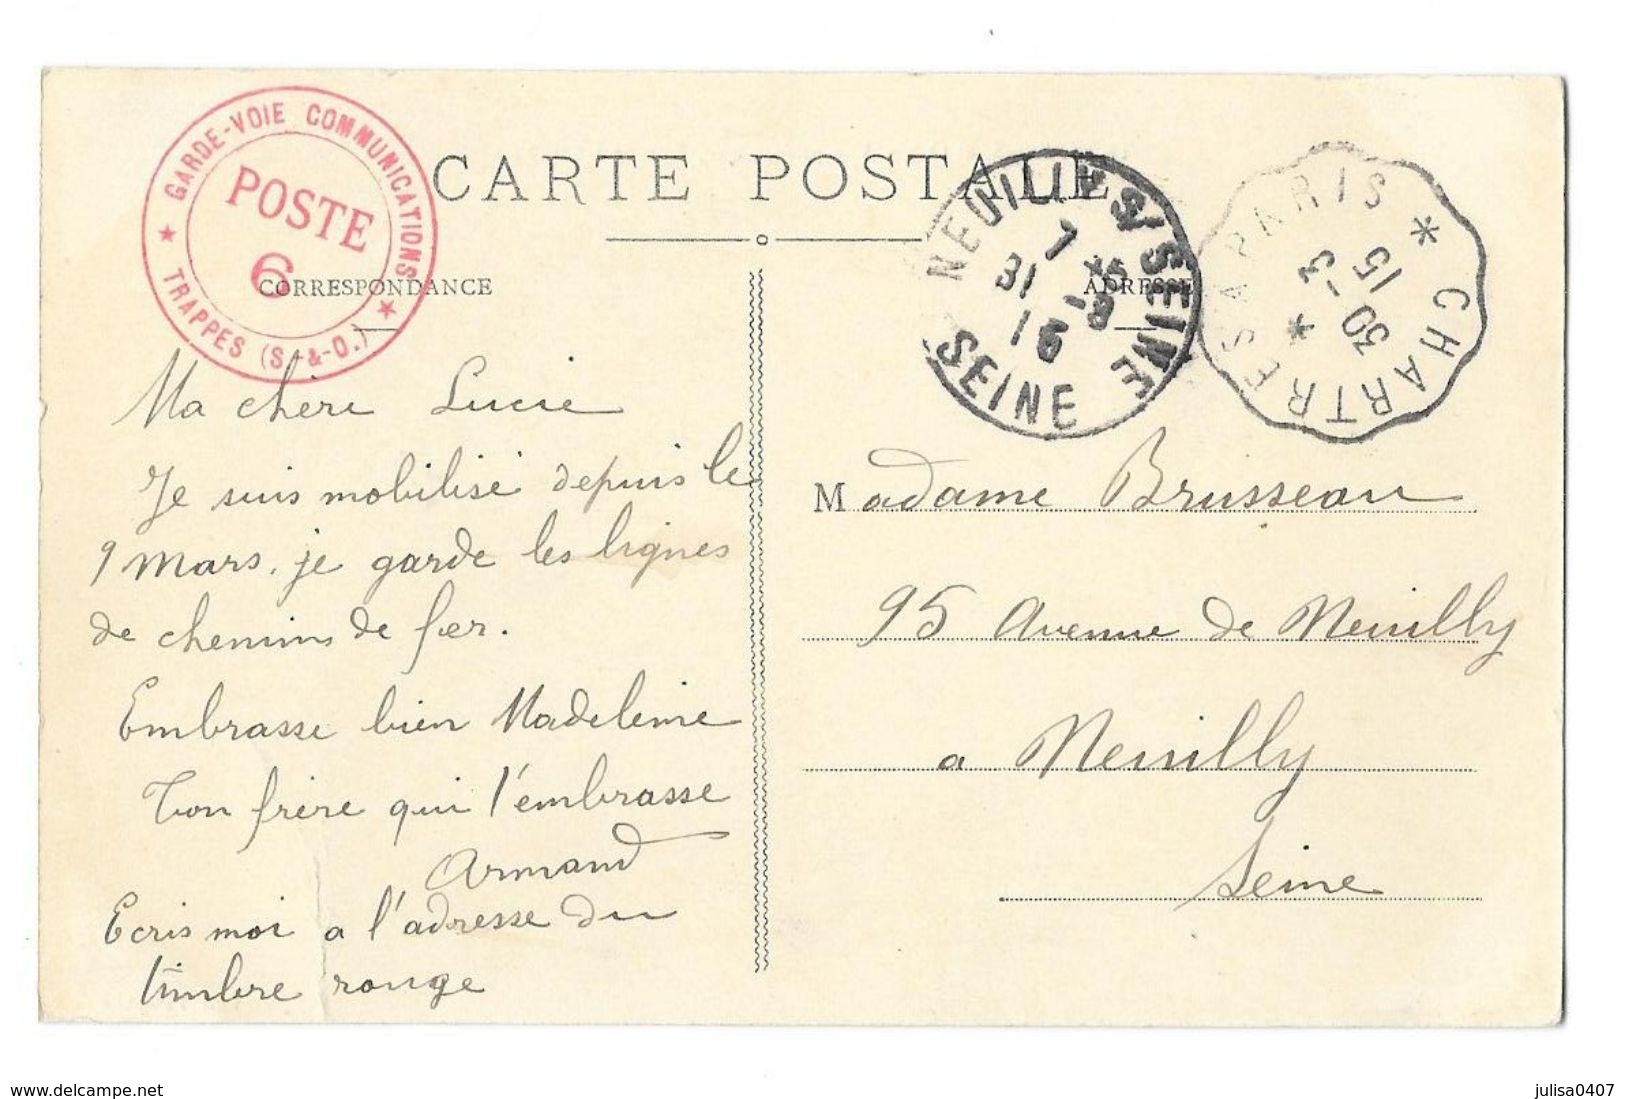 GARDE-VOIE COMMUNICATIONS
POSTE
6
TRAPPES (S.-&-O.)
CARTE POSTALE
CORRESPONDANCE
ADRESSE
NEUILLY S/SEINE
7
31 -3
15
SEINE
CHARTRES A PARIS
30 - 3
15
Ma chère Lucie
Je suis mobilisé depuis le
9 Mars. je garde les lignes
de chemins de fer.
Embrasse bien Madeleine
Ton frère qui t'embrasse
Armand
Ecris moi a l'adresse du
timbre rouge
Madame Brusseau
95 Avenue de Neuilly
a Neuilly
Seine
www.delcampe.net
julisa0407